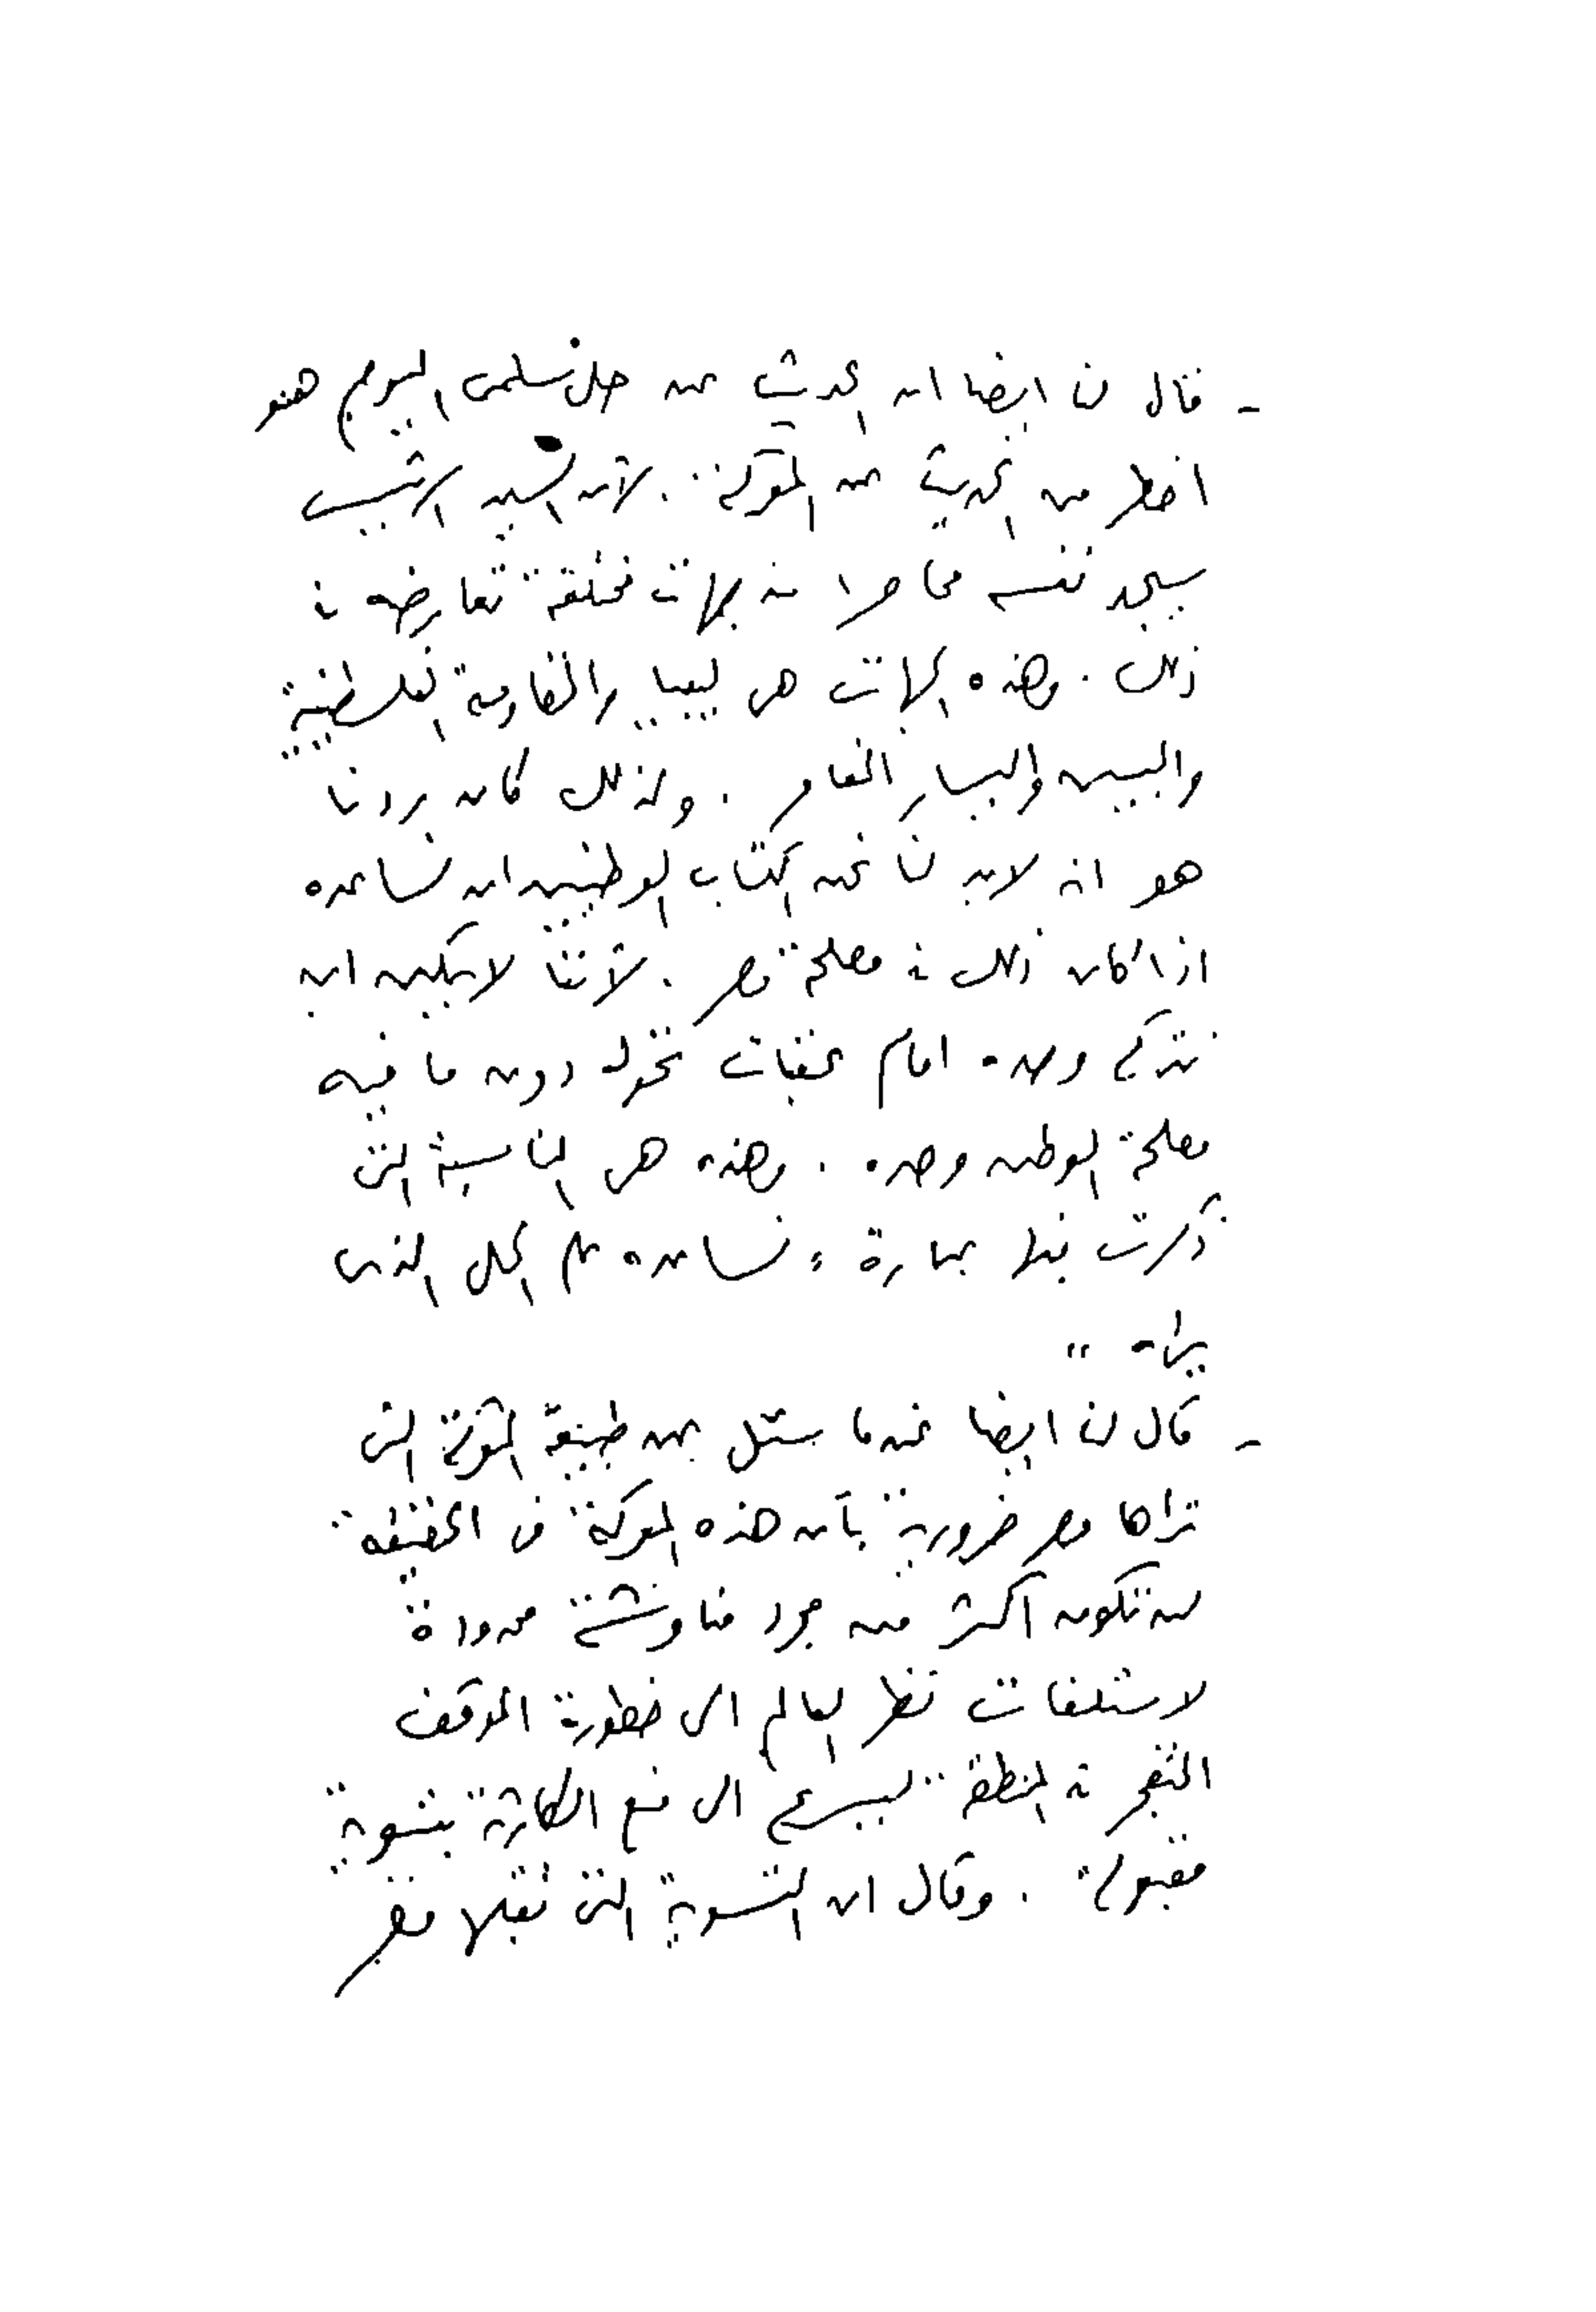 - قال لنا ايضا ان الحديث عن حل سلمى اليوم هو
اخطر من الحديث عن المعركة . لأن السيد الرئيس
سيجد نفسه محاصرا من جهات مختلفة تعارضه فى
ذلك . وهذه الجهات هى ليبيا والمقاومة الفلسطينية
واليمين واليسار المغامر . ولذلك كان ردنا
هو انه لابد لنا نحن الكتاب الوطنيين ان نساعده
اذا كان ذلك فى مصلحة مصر . لأننا لايمكن ان
نتركه وحده امام عقبات تحول دون ما فيه
مصلحة الوطن وحده . وهذه هى المناسبة التى
ذكرت فيها عبارة " نساعده على الحل الذى
يراه "
- قال لنا ايضا عندما سئل عن طبيعة المعركة التى
تراها مصر ضرورية بأن هذه المعركة فى الحقيقة
لن تكون اكثر من مجرد مناوشة محدودة
لاستلفات نظر العالم الى خطورة الموقف
المتفجر فى المنطقة ليسرع الى منع الكارثة بتسوية
مقبولة . وقال ان التسوية التى تقبلها مصر